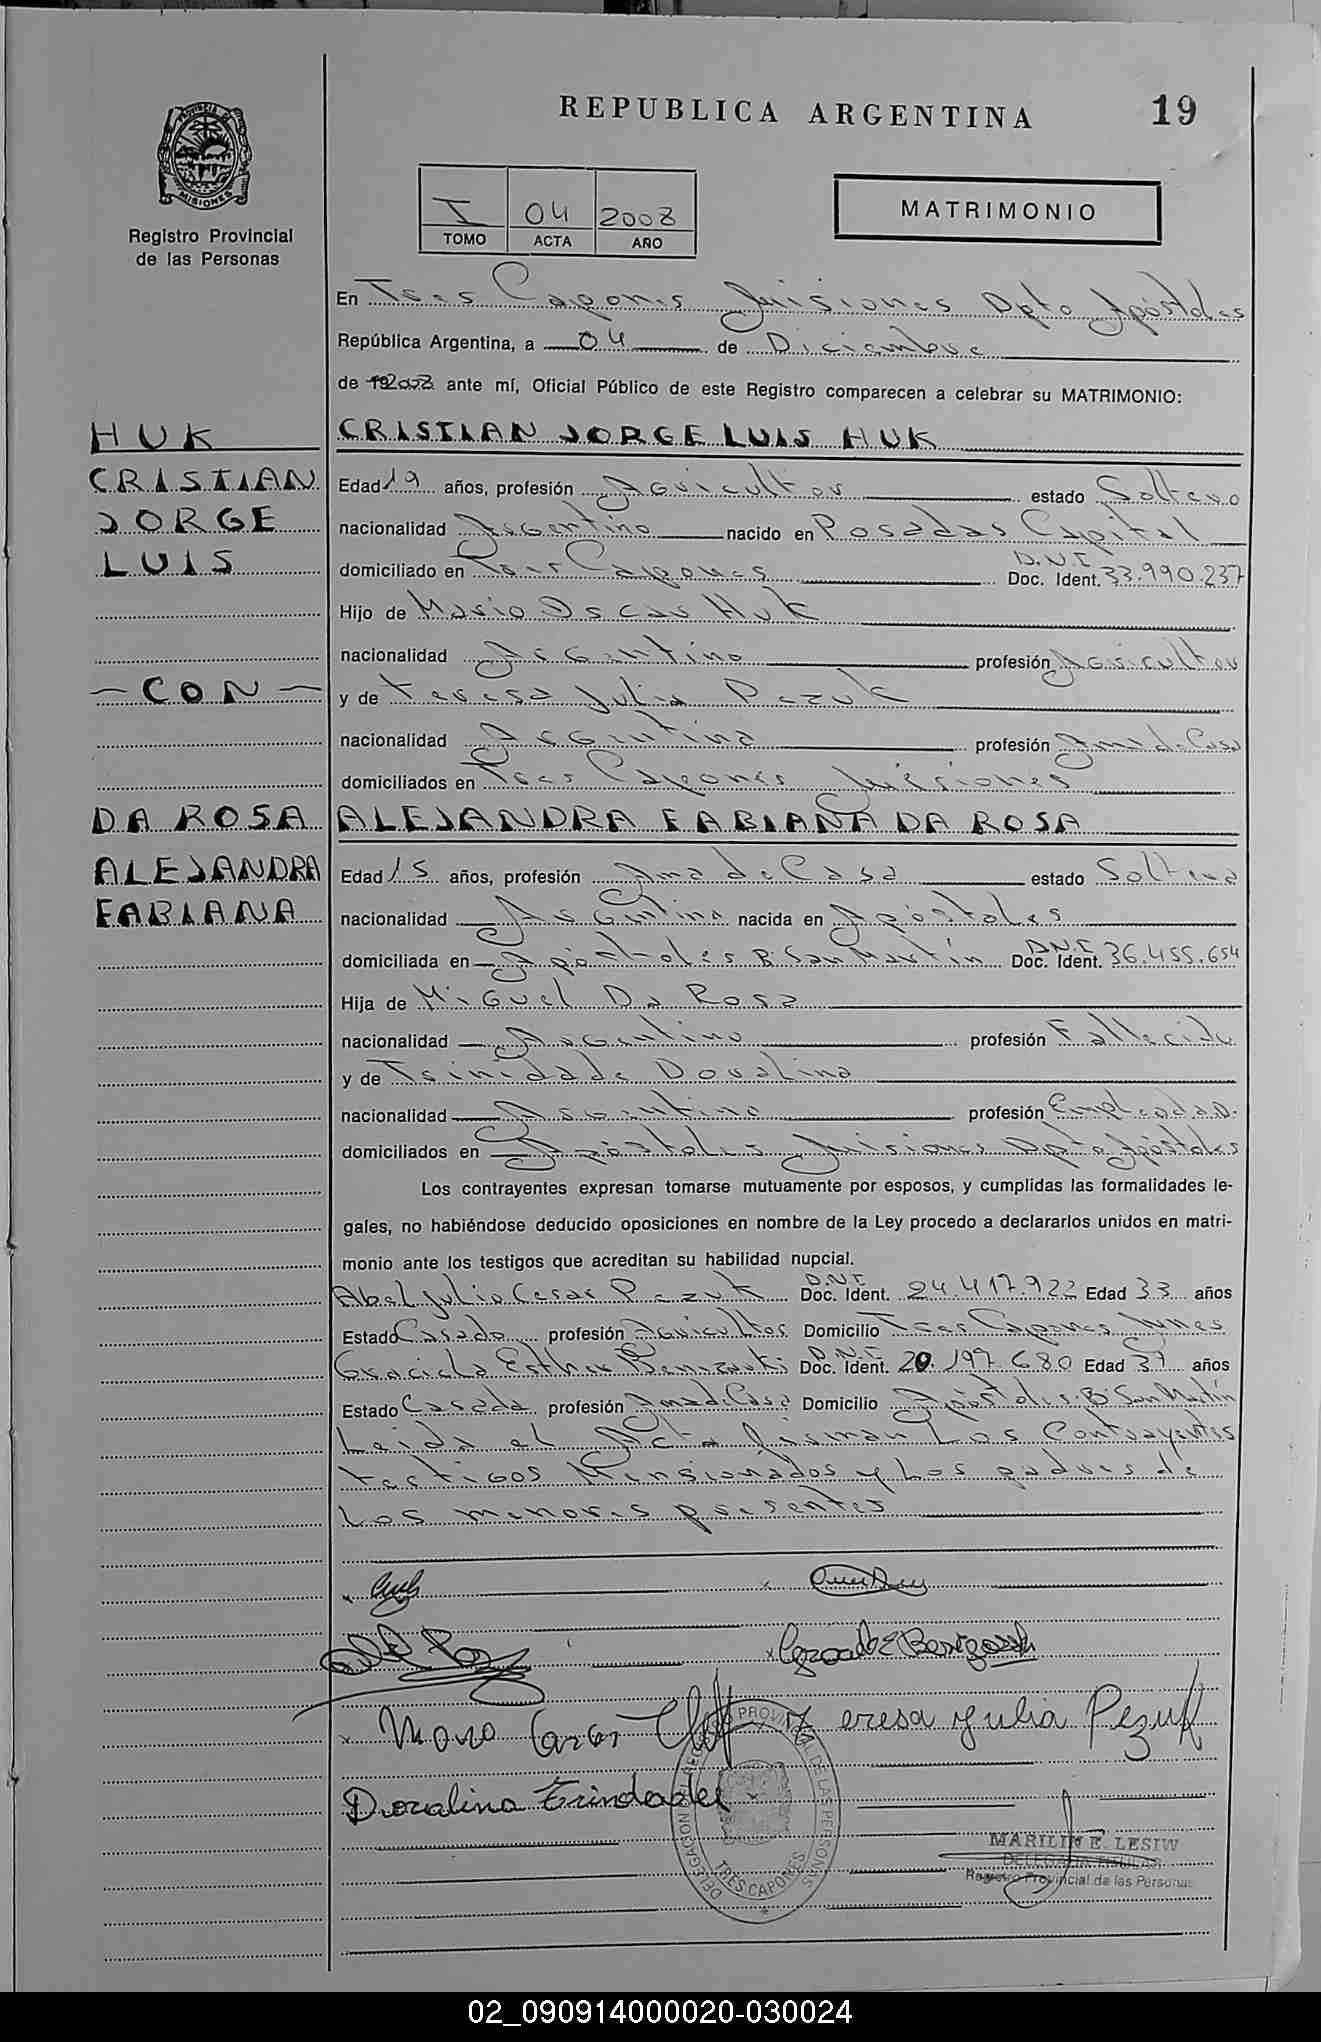 REPUBLICA ARGENTINA
19
PROVINCIA DE MISIONES
Registro Provincial
de las Personas
I 04 2008
TOMO ACTA AÑO
MATRIMONIO
En Tres Capones Misiones Dpto Apóstoles
República Argentina, a 04 de Diciembre
de 2008 ante mí, Oficial Público de este Registro comparecen a celebrar su MATRIMONIO:
HUK
CRISTIAN
JORGE
LUIS
- CON -
DA ROSA
ALEJANDRA
FABIANA
CRISTIAN JORGE LUIS HUK
Edad 19 años, profesión Agricultor estado Soltero
nacionalidad Argentino nacido en Posadas Capital
D.N.I
domiciliado en Tres Capones Doc. Ident. 33.990.237
Hijo de Mario Oscar Huk
nacionalidad Argentino profesión Agricultor
y de Teresa Julia Pezuk
nacionalidad Argentina profesión Ama de Casa
domiciliados en Tres Capones Misiones
ALEJANDRA FABIANA DA ROSA
Edad 15 años, profesión Ama de Casa estado Soltera
nacionalidad Argentina nacida en Apóstoles
D.N.I
domiciliada en Apóstoles B. San Martín Doc. Ident. 36.455.654
Hija de Miguel Da Rosa
nacionalidad Argentino profesión Fallecido
y de Trinidade Doralina
nacionalidad Argentina profesión Empleada D.
domiciliados en Apóstoles Misiones Dpto Apóstoles
Los contrayentes expresan tomarse mutuamente por esposos, y cumplidas las formalidades le-
gales, no habiéndose deducido oposiciones en nombre de la Ley procedo a declararlos unidos en matri-
monio ante los testigos que acreditan su habilidad nupcial.
D.N.I
Abel Julio Cesar Pezuk Doc. Ident. 24.417.922 Edad 33 años
Estado Casado profesión Agricultor Domicilio Tres Capones Mnes
D.N.I
Graciela Esther Doc. Ident. 20.197.680 Edad 39 años
Estado Casada profesión Ama de Casa Domicilio Apóstoles B. San Martín
Leida el Acta firman Los Contrayentes
testigos Mensionados y Los padres de
Los menores presentes
Teresa Yulia Pezuk
Doralina Trindade
DELEGACION DEL REGISTRO PROVINCIAL DE LAS PERSONAS
TRES CAPONES
MARILIN E. LESIW
DELEGADA TITULAR
Registro Provincial de las Personas
02_090914000020-030024